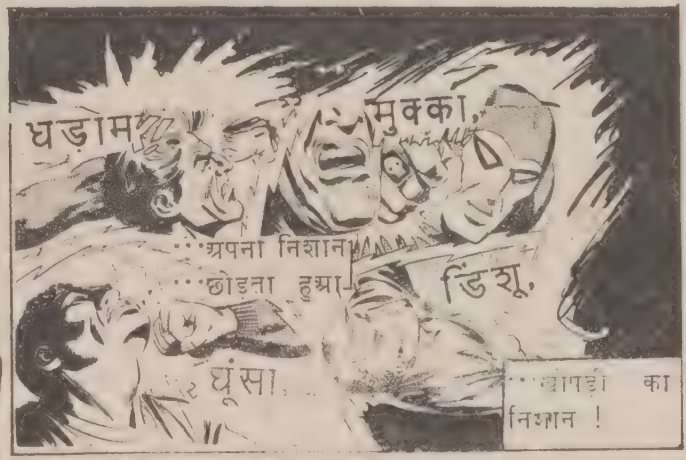 घड़ाम
मुक्का,
...अपना निशान
...छोडता हुआ
डिंशू,
घूंसा,
...खोपडी का
निशान !